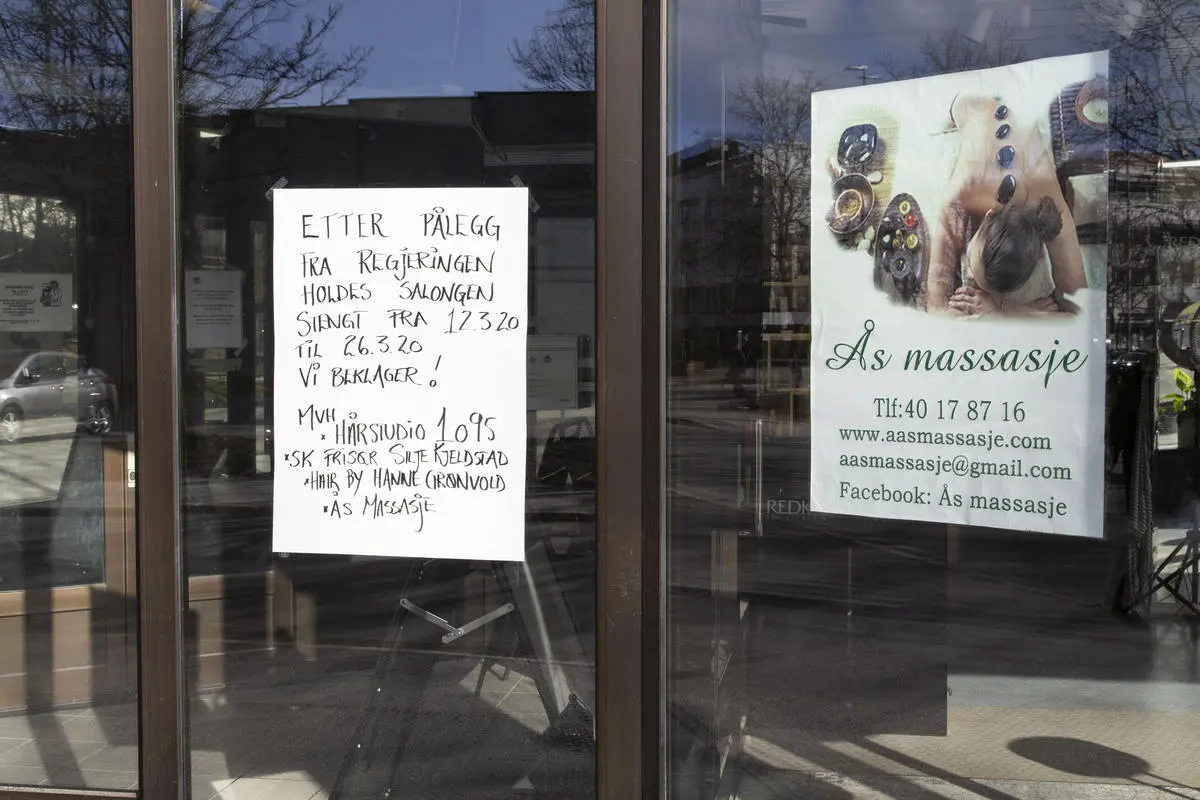 ETTER PÅLEGG
FRA REGJERINGEN
HOLDES SALONGEN
STENGT FRA 12.3.20
TIL 26.3.20
VI BEKLAGER!
MVH
* HÅRSTUDIO 1095
*SK FRISØR SILJE KJELDSTAD
*HAIR BY HANNE GRØNVOLD
*ÅS MASSASJE
Ås massasje
Tlf:40 17 87 16
www.aasmassasje.com
aasmassasje@gmail.com
Facebook: Ås massasje